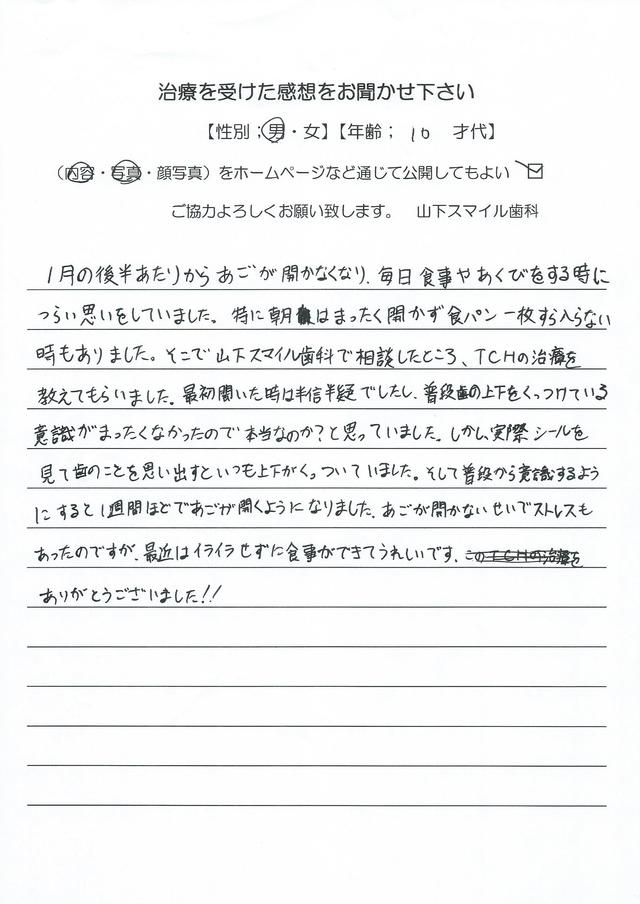 治療を受けた感想をお聞かせ下さい
【性別；男・女】【年齢； 10 才代】
（内容・写真・顔写真）をホームページなど通じて公開してもよい ☑
ご協力よろしくお願い致します。 山下スマイル歯科
1月の後半あたりからあごが開かなくなり、毎日食事やあくびをする時に
つらい思いをしていました。特に朝はまったく開かず食パン一枚すら入らない
時もありました。そこで山下スマイル歯科で相談したところ、TCHの治療を
教えてもらいました。最初聞いた時は半信半疑でしたし、普段歯の上下をくっつけている
意識がまったくなかったので本当なのか？と思っていました。しかし、実際シールを
見て歯のことを思い出すといつも上下がくっついていました。そして普段から意識するよう
にすると1週間ほどであごが開くようになりました。あごが開かないせいでストレスも
あったのですが、最近はイライラせずに食事ができてうれしいです。このTCHの治療を
ありがとうございました!!